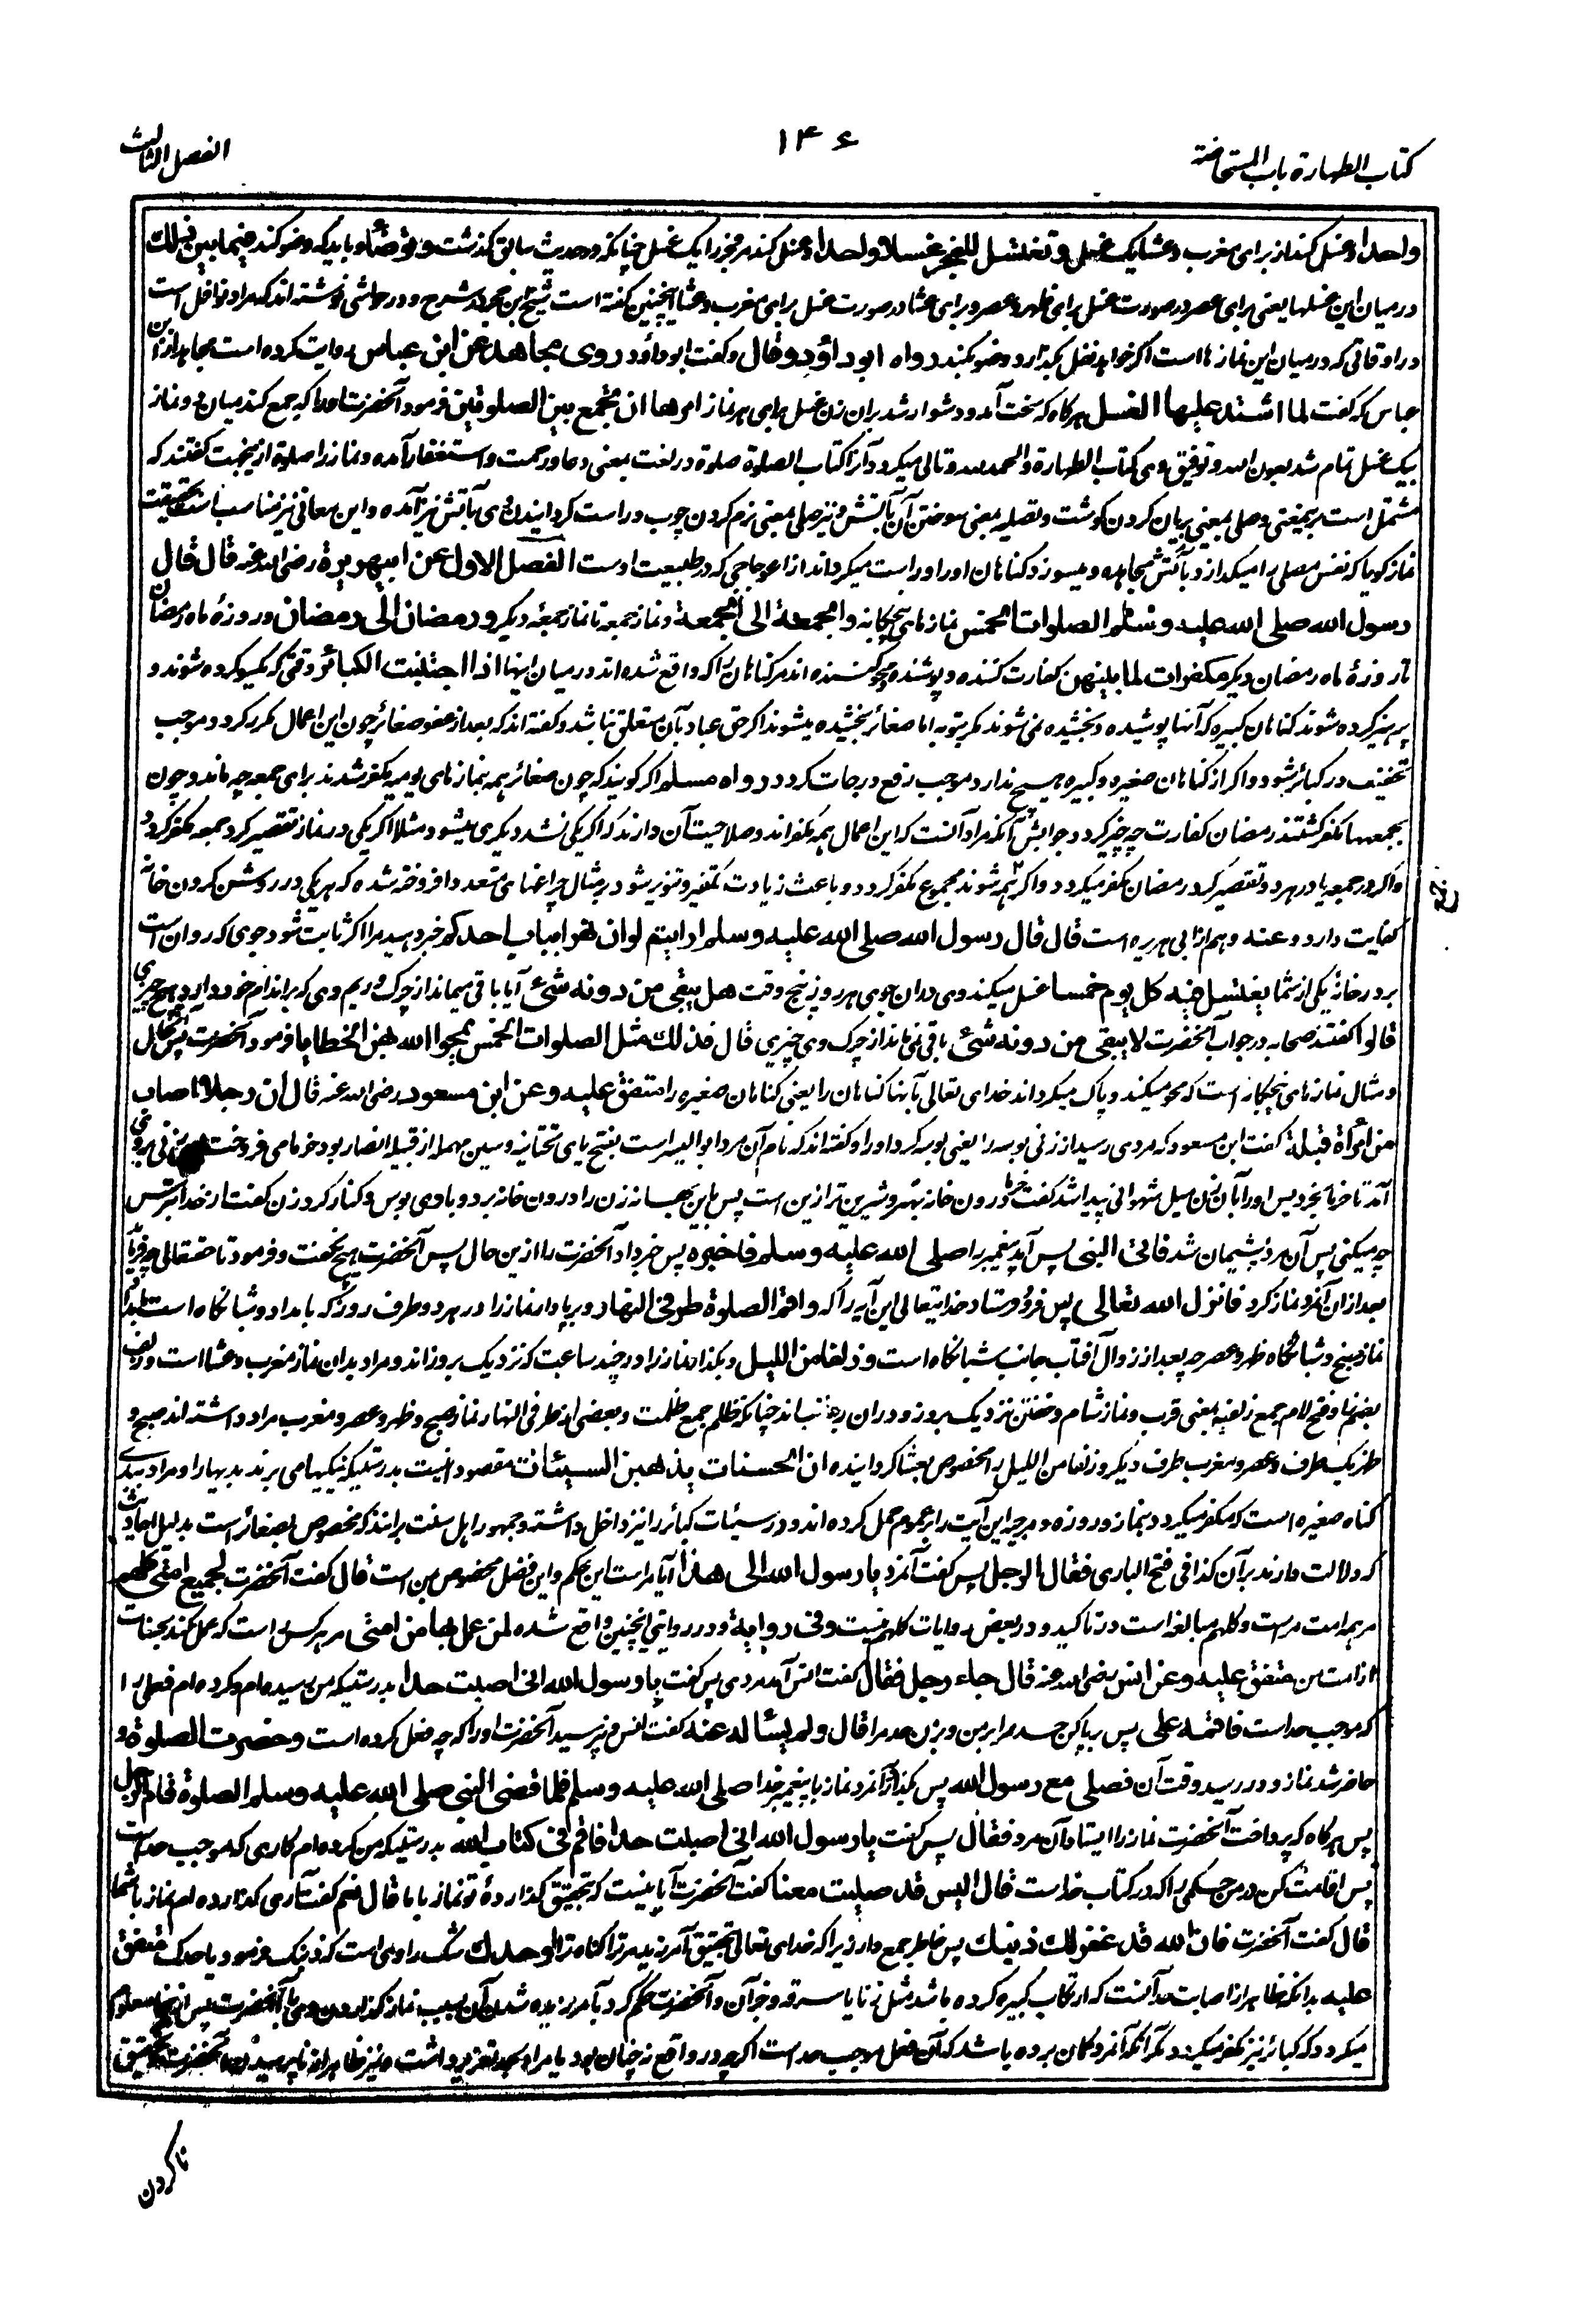 كتاب الطهارة باب المستحاضة
۱۴۶
الفصل الثالث
واحدا و غسل کند از برای مغرب و عشا یک غسل و تغتسل للفجر غسلا واحدا و غسل کند مر فجر را یک غسل چنانکه در حدیث سابق گذشت و توضأ و باید که وضو کند فیما بین ذلك
در میان این غسلها یعنی برای عصر در صورت غسل برای ظهر و عصر و برای عشا در صورت غسل برای مغرب و عشا اینچنین گفته است شیخ ابن حجر در شرح و در حواشی نوشته اند که مراد نوافل است
در اوقاتی که در میان این نمازها است اگر خواهد نفل بگذارد وضو بکند رواه ابو داؤد وقال و گفت ابو داؤد روى مجاهد عن ابن عباس روایت کرده است مجاهد از ابن
عباس که گفت لما اشتد عليها الغسل هر گاه که سخت آمد و دشوار شد بر آن زن غسل برای هر نماز امرها ان تجمع بین الصلوتین فرمود آنحضرت او را که جمع کند میان دو نماز
بیک غسل تمام شد بعون الله و توفیق وی کتاب الطهارة والحمد لله و تالی میگردد آنرا کتاب الصلوة صلوة در لغت بمعنی دعا و رحمت و استغفار آمده و نماز را صلوة ازینجهت گفتند که
مشتمل است بر اینمعنی و صلی بمعنی بریان کردن گوشت و تصلیه بمعنی سوختن آن بآتش و نیز صلی بمعنی نرم کردن چوب و راست گردانیدن وی بآتش نیز آمده و این معانی نیز مناسب است بحقیقت
نماز گویا که نفس مصلی را میگدازد بآتش مجاهده و میسوزد گناهان او را و راست میگرداند از اعوجاجی که در طبیعت اوست الفصل الاول عن ابیهریرة رضی الله عنه قال قال
رسول الله صلى الله عليه وسلم الصلوات الخمس نمازهای پنجگانه والجمعة الى الجمعة و نماز جمعه تا نماز جمعهٔ دیگر ورمضان الى رمضان و روزهٔ ماه رمضان
تا روزهٔ ماه رمضان دیگر مکفرات لما بینهن کفارت کننده و پوشنده و محو کننده اند مر گناهان را که واقع شده اند در میان اینها اذا اجتنبت الکبائر وقتی که یکسو کرده شوند و
پرهیز کرده شوند گناهان کبیره که آنها پوشیده و بخشیده نمی شوند مگر بتوبه اما صغائر بخشیده میشوند اگر حق عباد بآن متعلق نباشد و گفته اند که بعد از عفو صغائر چون این اعمال مکرر گردد موجب
تخفیف در کبائر شود و اگر از گناهان صغیره و کبیره هیچ ندارد موجب رفع درجات گردد رواه مسلم اگر گویند که چون صغائر همه بنمازهای یومیه مکفر شدند برای جمعه چه ماند و چون
بجمعها مکفر گشتند رمضان کفارت چه چیز گردد جوابش آنکه مراد آنست که این اعمال همه مکفراند و صلاحیت آن دارند که اگر یکی نشد دیگری میشود مثلا اگر یکی در نماز تقصیر کرد جمعه مکفر گردد
و اگر در جمعه یا در هر دو تقصیر کرد رمضان مکفر میگردد و اگر همه شوند مجموع مکفر گردد و باعث زیادت تکفیر و تنویر شود بر مثال چراغهای متعدد افروخته شده که هر یکی در روشن کردن خانه
کفایت دارد وعنه و هم از ابی هریره است قال قال رسول الله صلى الله عليه وسلم ارايتم لو ان نهرا بباب احدكم خبر دهید مرا اگر ثابت شود جوی که روان است
بر در خانهٔ یکی از شما يغتسل فيه كل يوم خمسا غسل میکند وی در آن جوی هر روز پنج وقت هل يبقى من درنه شئ آیا باقی میماند از چرک و ریم وی که بر اندام خود دارد هیچ چیزی
قالوا گفتند صحابه در جواب آنحضرت لا يبقى من درنه شئ باقی نمی ماند از چرک وی چیزی قال فذلك مثل الصلوات الخمس يمحو الله بهن الخطايا فرمود آنحضرت پس این حال
و مثال نمازهای پنجگانه است که محو میکند و پاک میگرداند خدای تعالی بآنها گناهان را یعنی گناهان صغیره را متفق عليه وعن ابن مسعود رضی الله عنه قال ان رجلا اصاب
من امرأة قبلة گفت ابن مسعود که مردی رسید از زنی بوسه را یعنی بوسه کرد او را و گفته اند که نام آن مرد ابو الیسر است بفتح یای تحتانیه و سین مهمله از قبیله انصار بود خرما می فروخت زنی بر وی
آمد تا خرما بخرد پس او را بآن زن میل شهوانی پیدا شد گفت درون خانه بهتر و شیرین تر ازین است پس باین بهانه زن را درون خانه برد و با وی بوس و کنار کرد زن گفت از خدا بترس
چه میکنی پس آن مرد پشیمان شد فاتى النبى پس آمد پیغمبر را صلى الله عليه وسلم فاخبره پس خبر داد آنحضرت را ازین حال پس آنحضرت هیچ نگفت و فرمود تا حقتعالی چه فرماید
بعد از آن آنمرد نماز کرد فانزل الله تعالى پس فرو فرستاد خدایتعالی این آیه را که واقم الصلوة طرفى النهار و بر پا دار نماز را در هر دو طرف روز که بامداد و شبانگاه است
نماز صبح و شبانگاه ظهر و عصر چه بعد از زوال آفتاب جانب شبانگاه است وزلفا من الليل و بگذار نماز را در چند ساعت که نزدیک بروز اند و مراد بدان نماز مغرب و عشا است و زلف
بضم زا و فتح لام جمع زلفه بمعنی قرب و نماز شام و خفتن نزدیک بروز چنانکه ظلم جمع ظلمت و بعضی از طرفی النهار نماز صبح و ظهر و عصر و مغرب مراد داشته اند صبح و
ظهر یک طرف و عصر و مغرب طرف دیگر و زلفا من اللیل را مخصوص بعشا گردانیده ان الحسنات يذهبن السيئات مقصود اینست بدرستیکه نیکیها می برند بدیها را و مراد ببدی
گناه صغیره است که مکفر میگردد بنماز و روزه و مرجیه این آیت را بر عموم حمل کرده اند و در سیئات کبائر را نیز داخل داشته و جمهور اهل سنت بر انند که مخصوص بصغائر است بدلیل احادیث
که دلالت دارند بر آن کذا فی فتح الباری فقال الرجل پس گفت آنمرد يا رسول الله الى هذا آیا مراست این حکم و این فضل مخصوص من است قال گفت آنحضرت لجميع امتى كلهم
مر همه امت مراست و کلهم مبالغه است در تاکید و در بعض روایات کلهم نیست وفى رواية و در روایتی اینچنین واقع شده لمن عمل بها من امتى مر هر کس راست که عمل کند بحسنات
از امت من متفق عليه وعن انس رضی الله عنه قال جاء رجل فقال گفت انس آمد مردی پس گفت يا رسول الله انى اصبت حدا بدرستیکه من رسیده ام و کرده ام فعلی را
که موجب حد است فاقمه على پس بر پا کن حد مرا بر من و بزن حد مرا قال ولم يسأله عنه گفت انس و نپرسید آنحضرت او را که چه فعل کرده است وحضرت الصلوة و
حاضر شد نماز و در رسید وقت آن فصلى مع رسول الله پس بگذارد آنمرد نماز با پیغمبر خدا صلى الله عليه وسلم فلما قضى النبى صلى الله عليه وسلم الصلوة قام الرجل
پس هر گاه که پرداخت آنحضرت نماز را ایستاد آن مرد فقال پس گفت يا رسول الله انى اصبت حدا فاقم فى كتاب الله بدرستیکه من کرده ام کاری که موجب حد است
پس اقامت کن در من حکمی را که در کتاب خداست قال اليس قد صليت معنا گفت آنحضرت آیا نیست که بتحقیق گذاردهٔ تو نماز با ما قال نعم گفت آری گذارده ام نماز با شما
قال گفت آنحضرت فان الله قد غفر لك ذنبك پس خاطر جمع دار زیرا که خدای تعالی بتحقیق آمرزید مر ترا گناه ترا او حدك شک راوی است که ذنبک فرمود یا حدک متفق
عليه بدانکه ظاهر از اصابت حد آنست که ارتکاب کبیره کرده باشد مثل زنا یا سرقه و جز آن و آنحضرت حکم کرد بآمرزیده شدن آن بسبب نماز گذاردن وی با آنحضرت پس ازینجا معلوم
میگردد که کبائر نیز مکفر میگردد مگر آنکه آنمرد گمان برده باشد که آن فعل موجب حد است اگرچه در واقع نه چنان بود یا مراد بحد تعزیر داشت و نیز ظاهر از ناپرسیدن آنحضرت و تحقیق
ناکردن